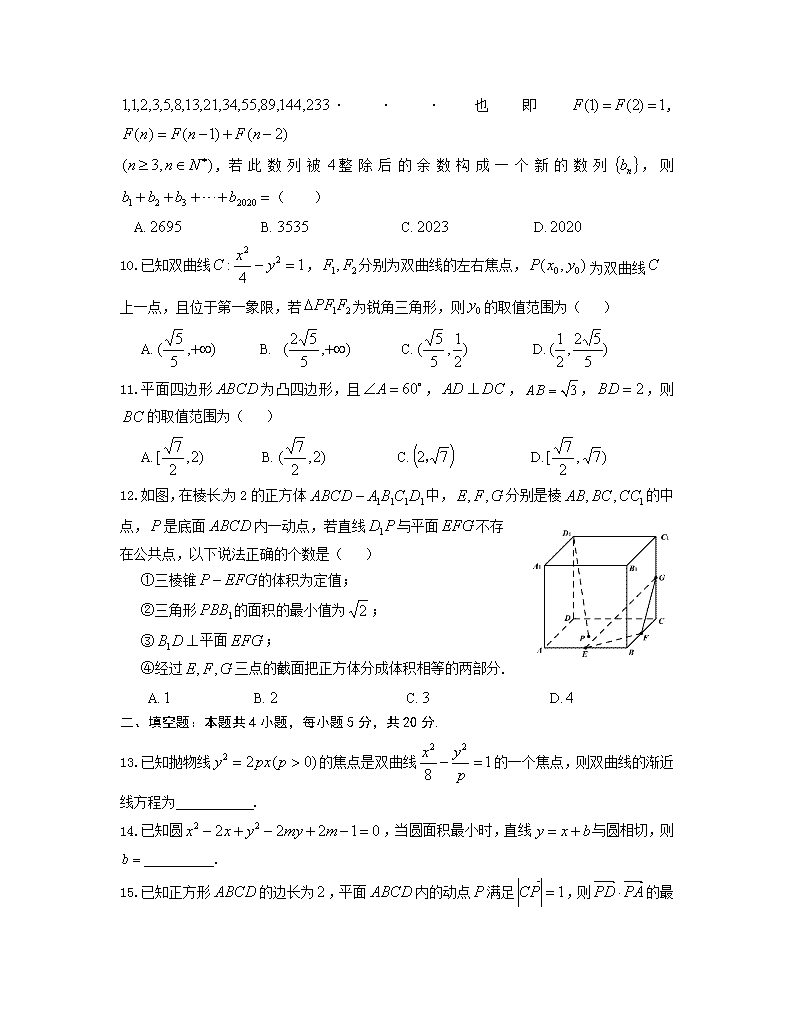 1,1,2,3,5,8,13,21,34,55,89,144,233··· 也即 F(1) = F(2) = 1,
F(n) = F(n−1) + F(n−2)
(n ≥ 3, n ∈ N*), 若此数列被 4 整除后的余数构成一个新的数列 {bₙ}, 则
b₁ + b₂ + b₃ + ⋯ + b₂₀₂₀ = ( )
A. 2695 B. 3535 C. 2023 D. 2020
10.已知双曲线 C : x²/4 − y² = 1, F₁, F₂ 分别为双曲线的左右焦点, P(x₀, y₀) 为双曲线 C
上一点, 且位于第一象限, 若 ΔPF₁F₂ 为锐角三角形, 则 y₀ 的取值范围为( )
A. (√5/5, +∞) B. (2√5/5, +∞) C. (√5/5, 1/2) D. (1/2, 2√5/5)
11.平面四边形 ABCD 为凸四边形, 且 ∠A = 60°, AD ⊥ DC, AB = √3, BD = 2, 则
BC 的取值范围为( )
A. [√7/2, 2) B. (√7/2, 2) C. (2, √7) D. [√7/2, √7)
12.如图,在棱长为 2 的正方体 ABCD − A₁B₁C₁D₁ 中, E, F, G 分别是棱 AB, BC, CC₁ 的中
点, P 是底面 ABCD 内一动点, 若直线 D₁P 与平面 EFG 不存
在公共点, 以下说法正确的个数是( )
①三棱锥 P − EFG 的体积为定值;
②三角形 PBB₁ 的面积的最小值为 √2;
③ B₁D ⊥平面 EFG;
④经过 E, F, G 三点的截面把正方体分成体积相等的两部分.
D₁ C₁
A₁ B₁
G
D C
P F
A E B
A. 1 B. 2 C. 3 D. 4
二、填空题:本题共 4 小题, 每小题 5 分, 共 20 分.
13.已知抛物线 y² = 2px(p > 0) 的焦点是双曲线 x²/8 − y²/p = 1 的一个焦点, 则双曲线的渐近
线方程为___________.
14.已知圆 x² − 2x + y² − 2my + 2m − 1 = 0, 当圆面积最小时, 直线 y = x + b 与圆相切, 则
b = __________.
15.已知正方形 ABCD 的边长为 2, 平面 ABCD 内的动点 P 满足 |CP| = 1, 则 PD · PA 的最